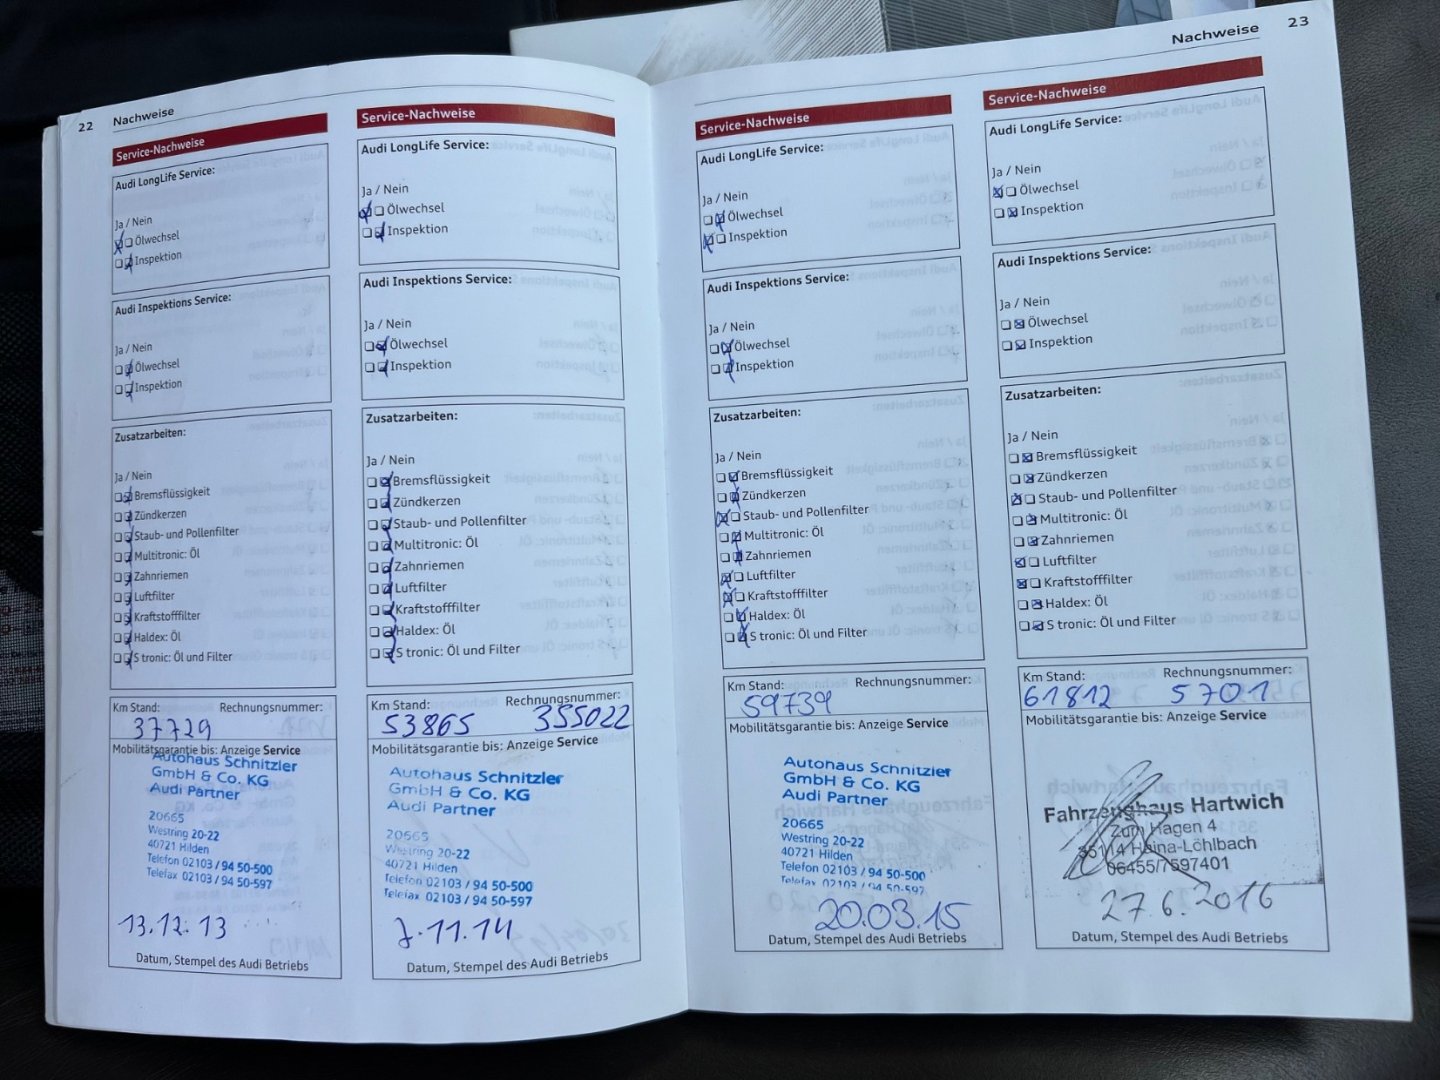 22 Nachweise
Service-Nachweise
Audi LongLife Service:
Ja / Nein
Ölwechsel
Inspektion
Audi Inspektions Service:
Ja / Nein
Ölwechsel
Inspektion
Zusatzarbeiten:
Ja / Nein
Bremsflüssigkeit
Zündkerzen
Staub- und Pollenfilter
Multitronic: Öl
Zahnriemen
Luftfilter
Kraftstofffilter
Haldex: Öl
S tronic: Öl und Filter
Km Stand: Rechnungsnummer:
37729
Mobilitätsgarantie bis: Anzeige Service
Autohaus Schnitzler
GmbH & Co. KG
Audi Partner
20665
Westring 20-22
40721 Hilden
Telefon 02103 / 94 50-500
Telefax 02103 / 94 50-597
13.12.13
Datum, Stempel des Audi Betriebs
Service-Nachweise
Audi LongLife Service:
Ja / Nein
Ölwechsel
Inspektion
Audi Inspektions Service:
Ja / Nein
Ölwechsel
Inspektion
Zusatzarbeiten:
Ja / Nein
Bremsflüssigkeit
Zündkerzen
Staub- und Pollenfilter
Multitronic: Öl
Zahnriemen
Luftfilter
Kraftstofffilter
Haldex: Öl
S tronic: Öl und Filter
Km Stand: Rechnungsnummer:
53865 355022
Mobilitätsgarantie bis: Anzeige Service
Autohaus Schnitzler
GmbH & Co. KG
Audi Partner
20665
Westring 20-22
40721 Hilden
Telefon 02103 / 94 50-500
Telefax 02103 / 94 50-597
7.11.14
Datum, Stempel des Audi Betriebs
Nachweise 23
Service-Nachweise
Audi LongLife Service:
Ja / Nein
Ölwechsel
Inspektion
Audi Inspektions Service:
Ja / Nein
Ölwechsel
Inspektion
Zusatzarbeiten:
Ja / Nein
Bremsflüssigkeit
Zündkerzen
Staub- und Pollenfilter
Multitronic: Öl
Zahnriemen
Luftfilter
Kraftstofffilter
Haldex: Öl
S tronic: Öl und Filter
Km Stand: Rechnungsnummer:
59739
Mobilitätsgarantie bis: Anzeige Service
Autohaus Schnitzler
GmbH & Co. KG
Audi Partner
20665
Westring 20-22
40721 Hilden
Telefon 02103 / 94 50-500
Telefax 02103 / 94 50-597
20.03.15
Datum, Stempel des Audi Betriebs
Service-Nachweise
Audi LongLife Service:
Ja / Nein
Ölwechsel
Inspektion
Audi Inspektions Service:
Ja / Nein
Ölwechsel
Inspektion
Zusatzarbeiten:
Ja / Nein
Bremsflüssigkeit
Zündkerzen
Staub- und Pollenfilter
Multitronic: Öl
Zahnriemen
Luftfilter
Kraftstofffilter
Haldex: Öl
S tronic: Öl und Filter
Km Stand: Rechnungsnummer:
61812 5701
Mobilitätsgarantie bis: Anzeige Service
Fahrzeughaus Hartwich
Zum Hagen 4
35114 Haina-Löhlbach
06455/7597401
27.6.2016
Datum, Stempel des Audi Betriebs